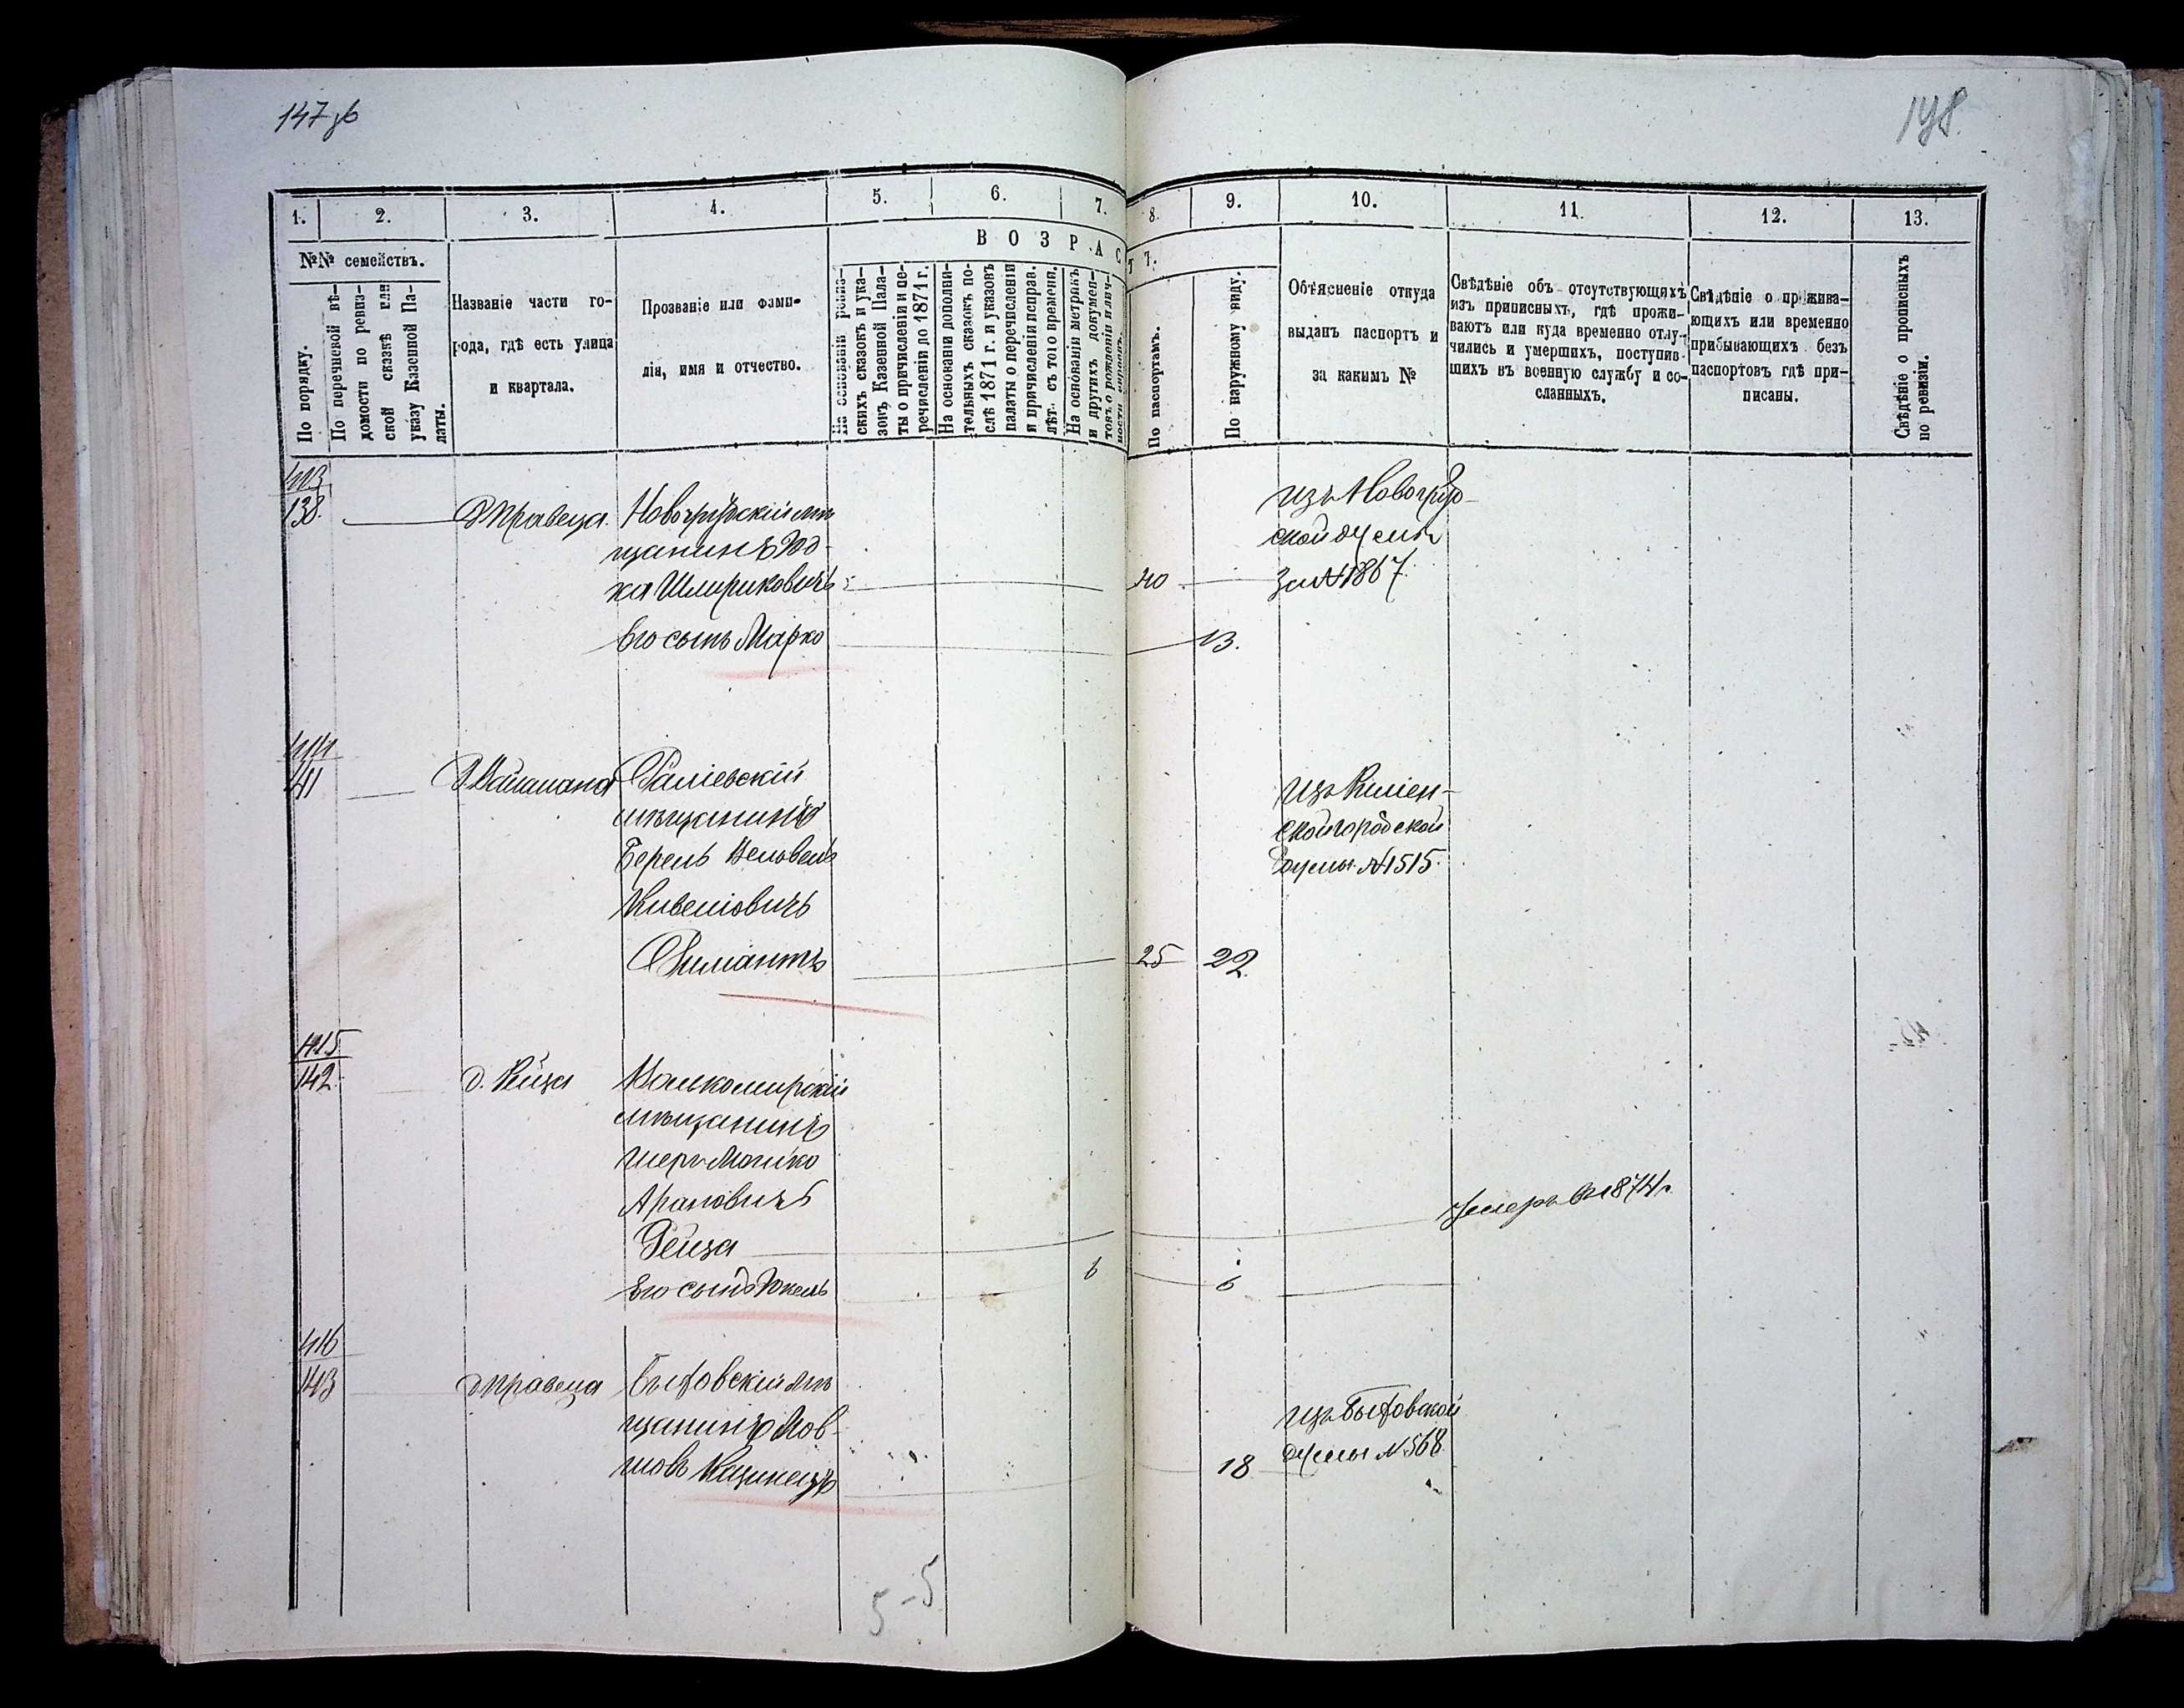 147 об
148.
1.
2.
3.
4.
5.
6.
7.
8.
9.
10.
11.
12.
13.
№№ семействъ.
ВОЗРАСТЪ.
По порядку.
По перечневой вѣ-
домости по ревиз-
ской сказкѣ или
указу Казенной Па-
латы.
Названіе части го-
рода, гдѣ есть улица
и квартала.
Прозваніе или фами-
лія, имя и отчество.
На основаніи ревиз-
скихъ сказокъ и ука-
зовъ Казенной Пала-
ты о причисленіи и пе-
речисленіи до 1871 г.
На основаніи дополни-
тельныхъ сказокъ по-
слѣ 1871 г. и указовъ
палаты о перечисленіи
и причисленіи исправ.
лѣт. съ того времени.
На основаніи метрикъ
и другихъ докумен-
товъ о рожденіи и лич-
По паспортамъ.
По наружному виду.
Объясненіе откуда
выданъ паспортъ и
за какимъ №
Свѣдѣніе объ отсутствующихъ
изъ приписныхъ, гдѣ прожи-
ваютъ или куда временно отлу-
чились и умершихъ, поступив-
шихъ въ военную службу и со-
сланныхъ.
Свѣдѣніе о прожива-
ющихъ или временно
прибывающихъ безъ
паспортовъ гдѣ при-
писаны.
Свѣдѣніе о прописныхъ
по ревизіи.
413
138.
Новогрудскій мѣ
щанинъ Юд-
ка Шмуриковичъ
40
Изъ Новогруд-
ской думы
За №1867.
Его сынъ Марко
13.
414
141
мѣщанинъ
Берель
25
22.
Изъ Вилен-
ской городской
думы №1515.
415
142.
Вилькомирскій
мѣщанинъ
Мошко
Ароновичъ
Умеръ въ 1874 г.
Его сынъ Юкель
6
6
416
143
Быховскій мѣ
щанинъ Мов-
шовъ
18
Изъ Быховской
думы №568.
5-5